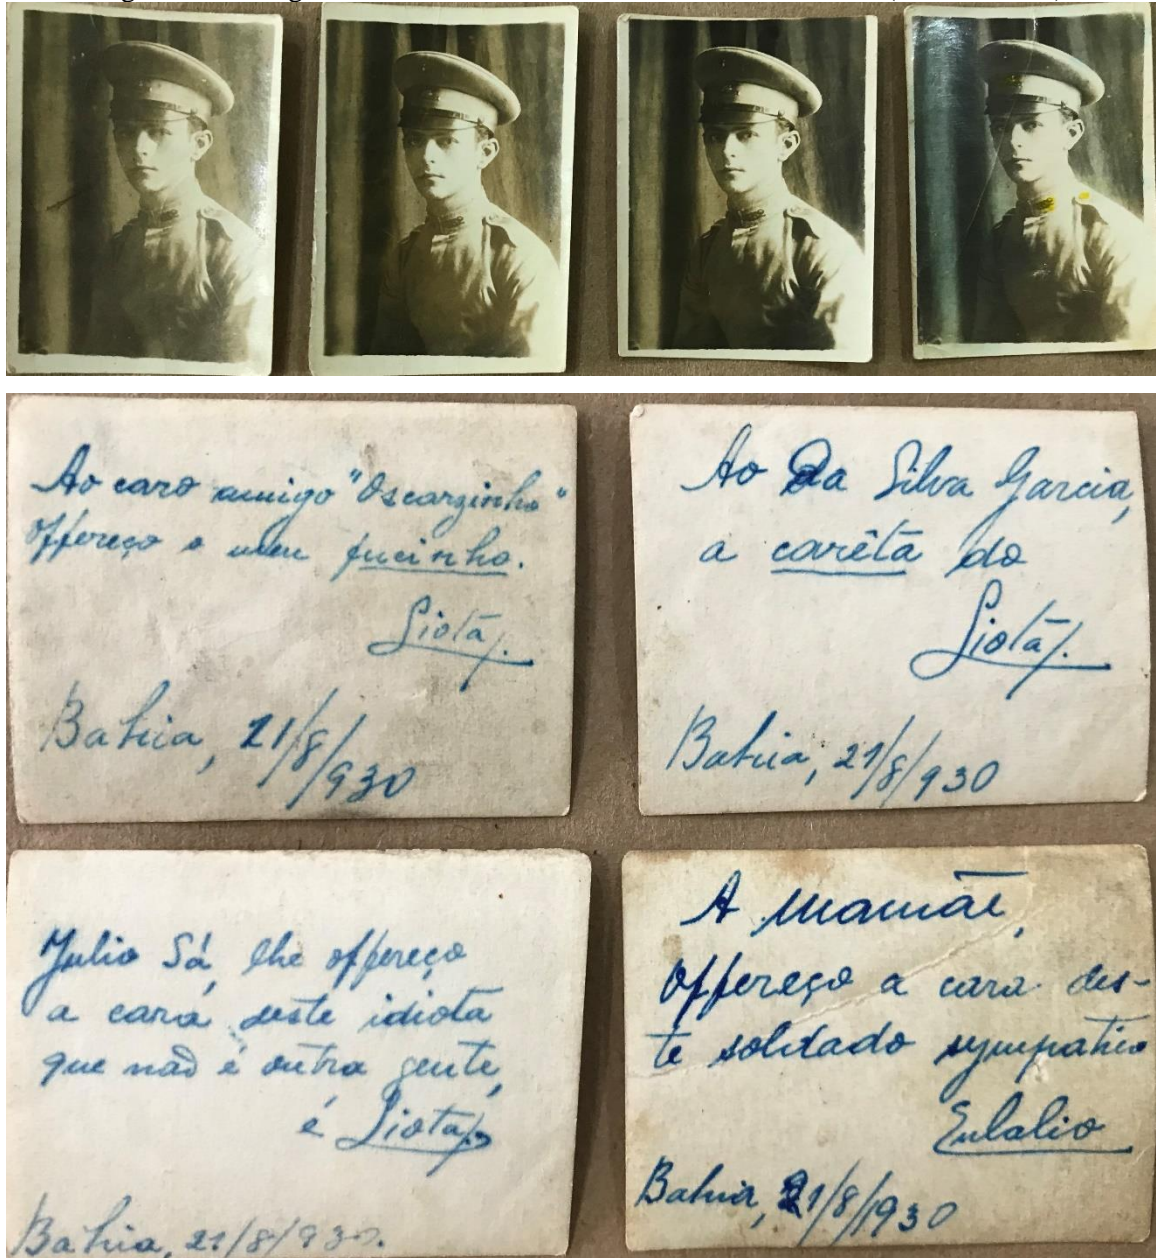 Ao caro amigo "Oscarzinho"
offereço o meu fucinho.
Liotá.
Bahia, 21/8/930
Ao Da Silva Garcia,
a carêta do
Liotá.
Bahia, 21/8/930
Julio Sá, lhe offereço
a cara deste idiota
que não é outra gente,
é Liotá.
Bahia, 21/8/930.
A Mamãe,
offereço a cara des-
te soldado sympathico
Eulalio
Bahia, 21/8/1930